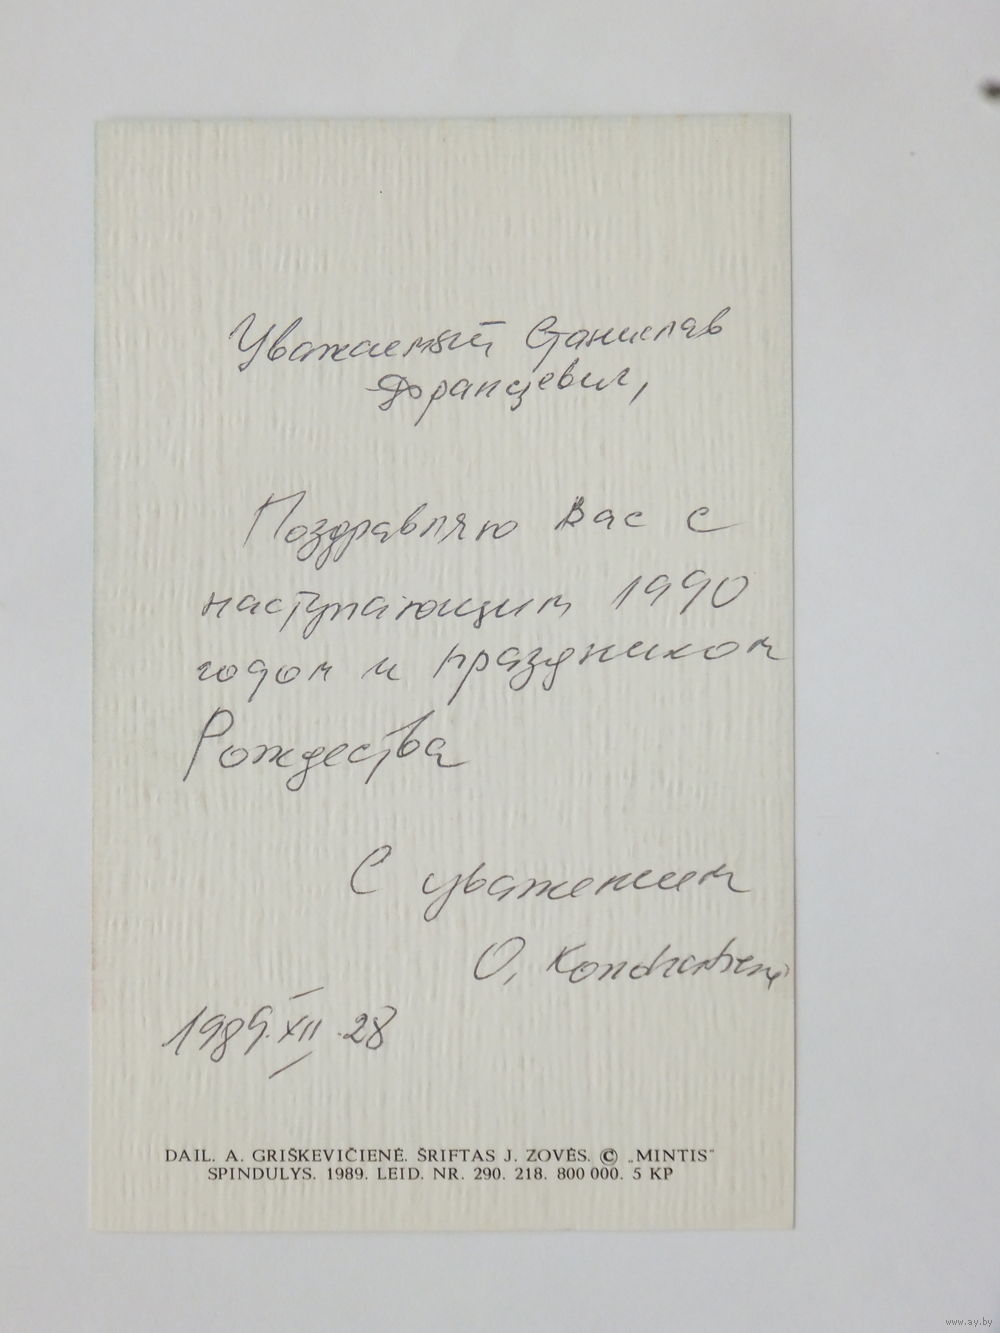 Уважаемый Станислав
Францевич,
Поздравляю Вас с
наступающим 1990
годом и праздником
Рождества
С уважением
O.
1989.XII.28
DAIL. A. GRIŠKEVIČIENĖ. ŠRIFTAS J. ZOVĖS. © „MINTIS”
SPINDULYS. 1989. LEID. NR. 290. 218. 800 000. 5 KP
www.ay.by